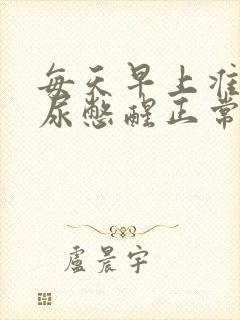 每天早上准
尿憋醒正常
盧晨宇